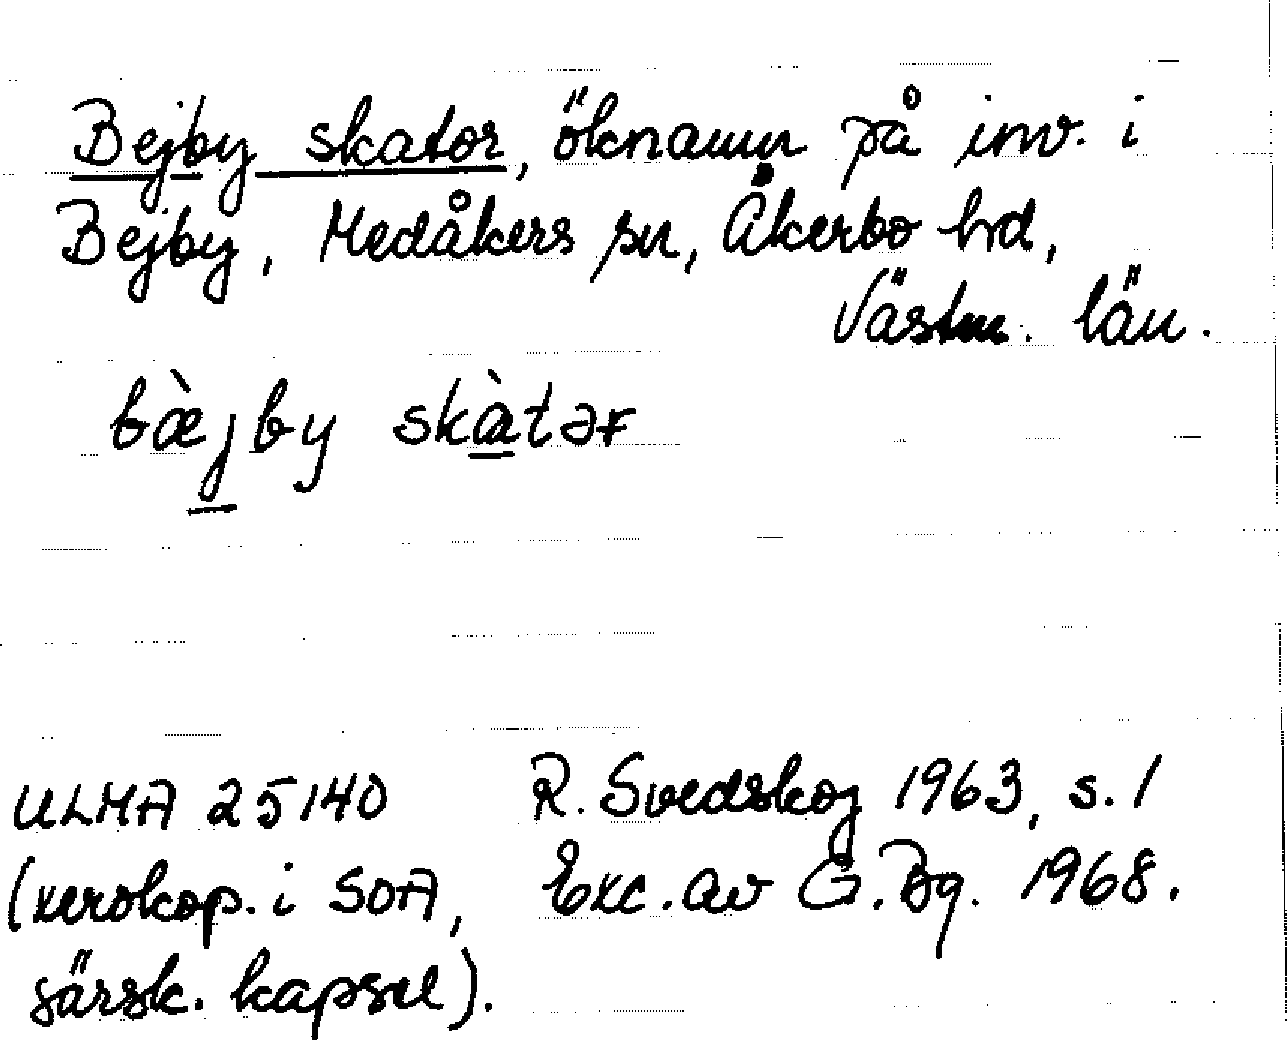 Bejby skator, öknamn på inv. i
Bejby, Medåkers sn, Åkerbo hd,
Västm. län.
bæ̀jby skàtər
ULMA 25140 R. Svedskog 1963, s. 1
(xerokop. i SOA, Exc. av G. Bg. 1968.
särsk. kapsel).